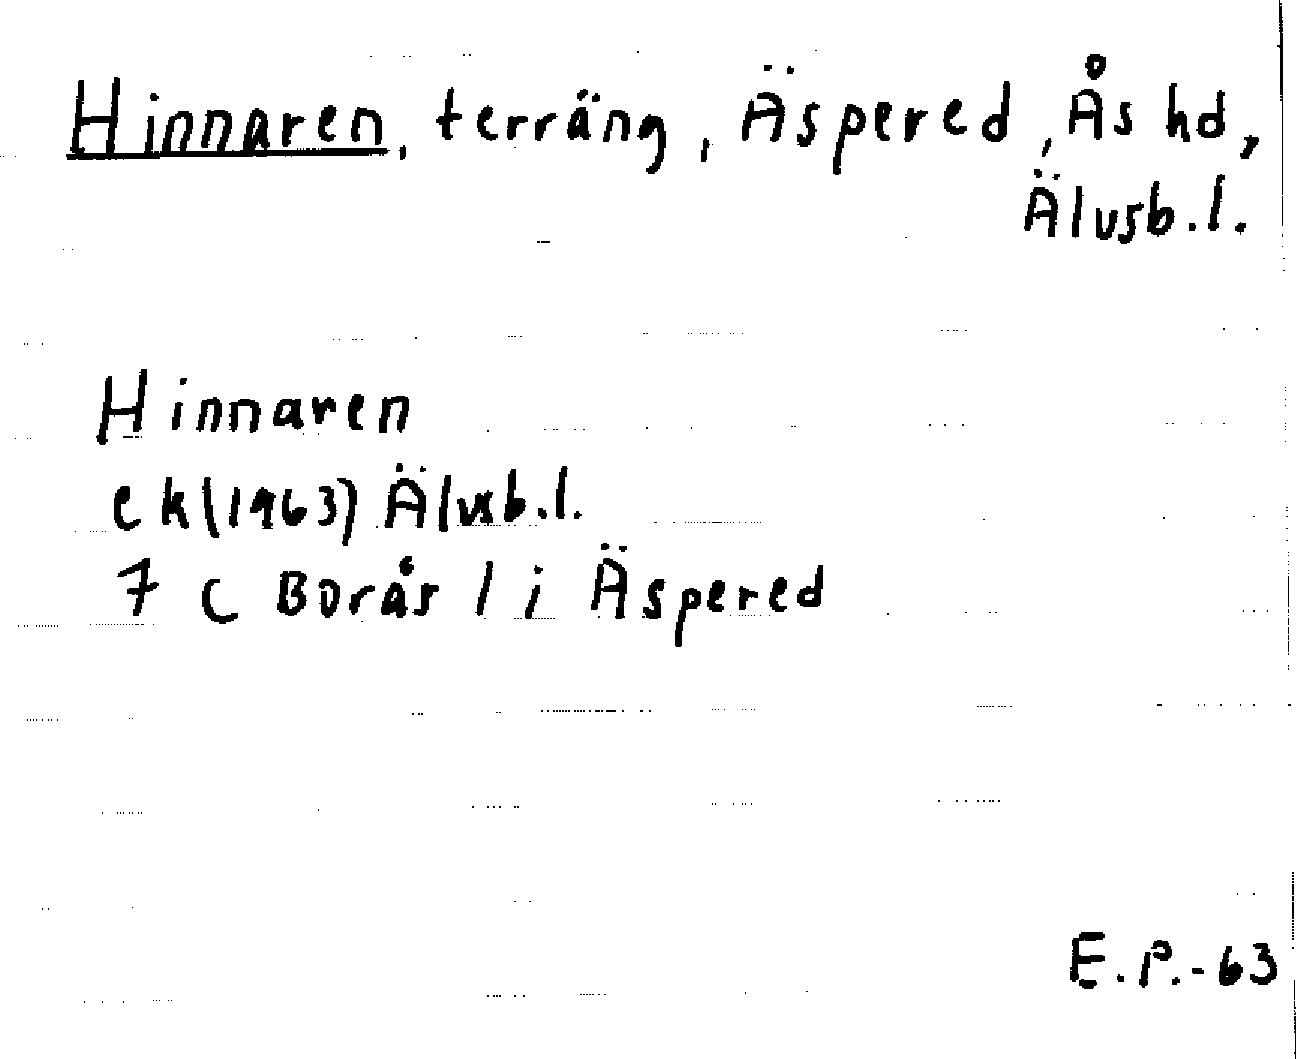 Hinnaren, terräng, Äspered, Ås hd,
Älvsb.l.
Hinnaren
ek (1963) Älvsb.l.
7 C Borås 1 i Äspered
E.P.-63